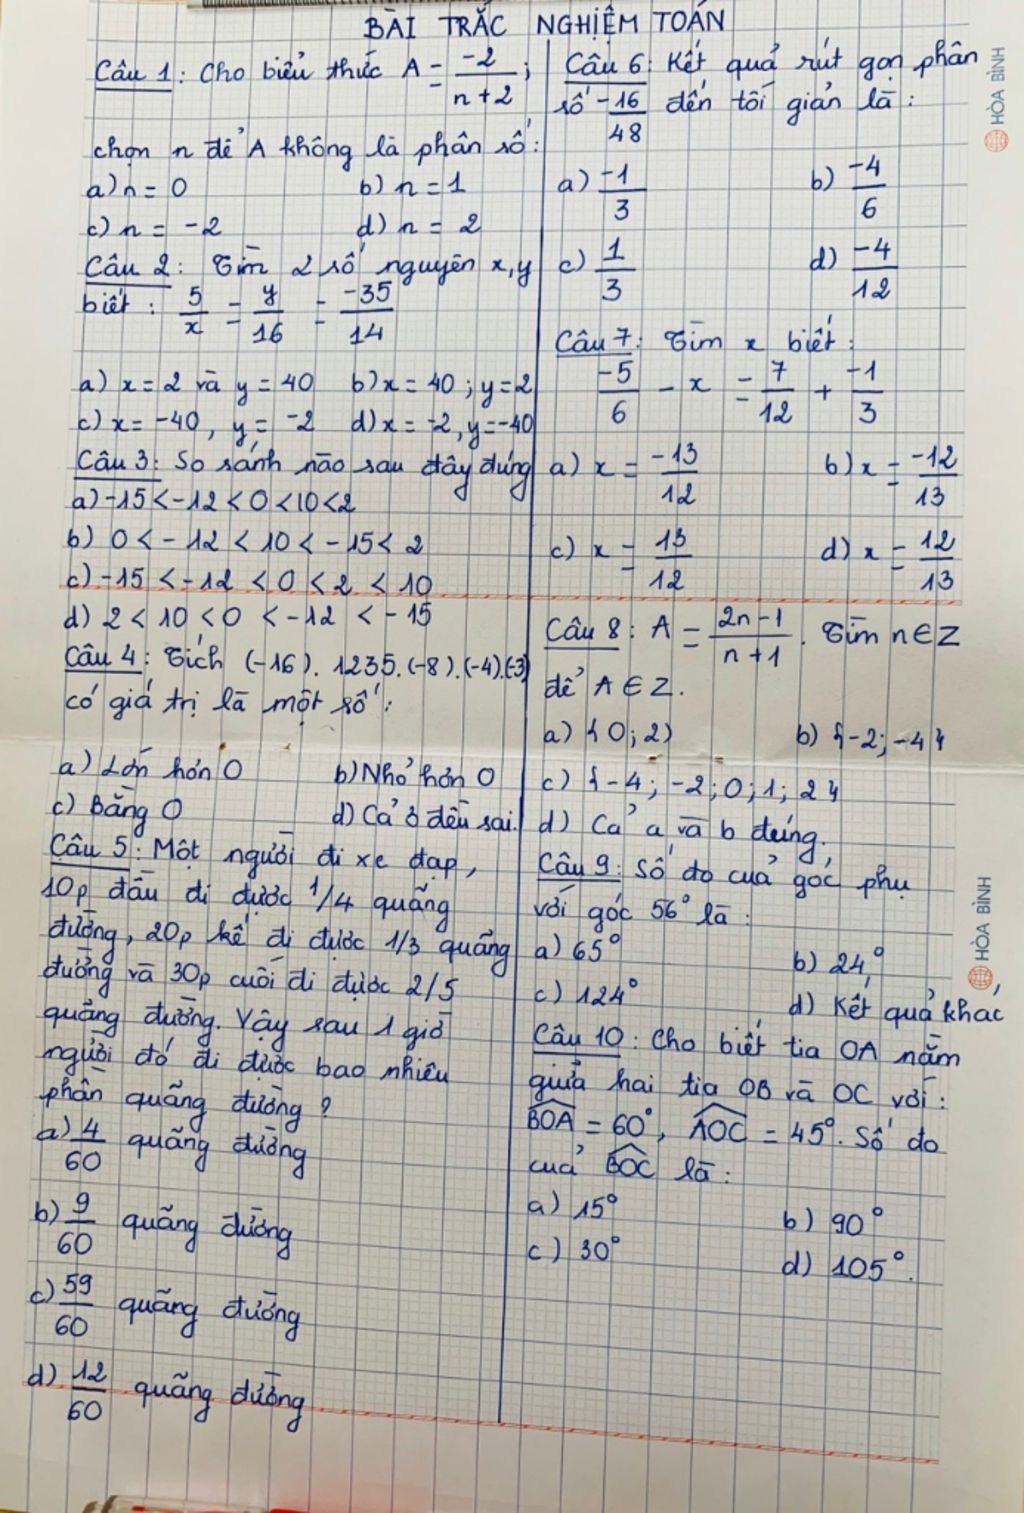 BÀI TRẮC NGHIỆM TOÁN
Câu 1: Cho biểu thức A = -2/n+2;
chọn n để A không là phân số:
a) n = 0 b) n = 1
c) n = -2 d) n = 2
Câu 2: Tìm 2 số nguyên x,y
biết: 5/x = y/16 = -35/14
a) x = 2 và y = 40 b) x = 40; y = 2
c) x = -40, y = -2 d) x = -2, y = -40
Câu 3: So sánh nào sau đây đúng
a) -15 < -12 < 0 < 10 < 2
b) 0 < -12 < 10 < -15 < 2
c) -15 < -12 < 0 < 2 < 10
d) 2 < 10 < 0 < -12 < -15
Câu 4: Tích (-16). 1235. (-8). (-4).(-3)
có giá trị là một số:
a) Lớn hơn 0 b) Nhỏ hơn 0
c) Bằng 0 d) Cả 3 đều sai.
Câu 5: Một người đi xe đạp,
10p đầu đi được 1/4 quãng
đường, 20p kế đi được 1/3 quãng
đường và 30p cuối đi được 2/5
quãng đường. Vậy sau 1 giờ
người đó đi được bao nhiêu
phần quãng đường?
a) 4/60 quãng đường
b) 9/60 quãng đường
c) 59/60 quãng đường
d) 12/60 quãng đường
Câu 6: Kết quả rút gọn phân
số -16/48 đến tối giản là:
a) -1/3 b) -4/6
c) 1/3 d) -4/12
Câu 7: Tìm x biết:
-5/6 - x = 7/12 + -1/3
a) x = -13/12 b) x = -12/13
c) x = 13/12 d) x = 12/13
Câu 8: A = 2n-1/n+1. Tìm n ∈ Z
để A ∈ Z.
a) {0; 2} b) {-2; -4}
c) {-4; -2; 0; 1; 2}
d) Cả a và b đúng.
Câu 9: Số đo của góc phụ
với góc 56° là:
a) 65° b) 24°
c) 124° d) Kết quả khác
Câu 10: Cho biết tia OA nằm
giữa hai tia OB và OC với:
BOA = 60°, AOC = 45°. Số đo
của BOC là:
a) 15° b) 90°
c) 30° d) 105°.
HÒA BÌNH
HÒA BÌNH